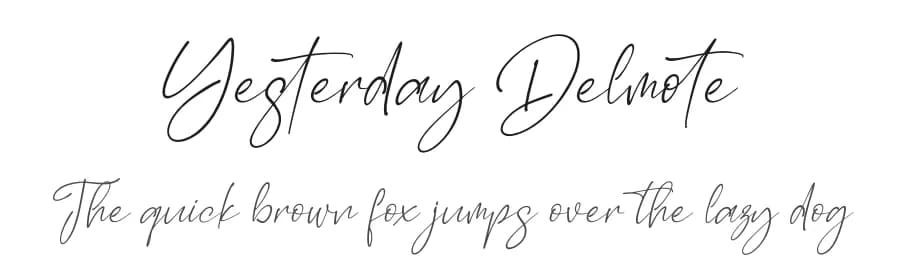 Yesterday Delmote
The quick brown fox jumps over the lazy dog